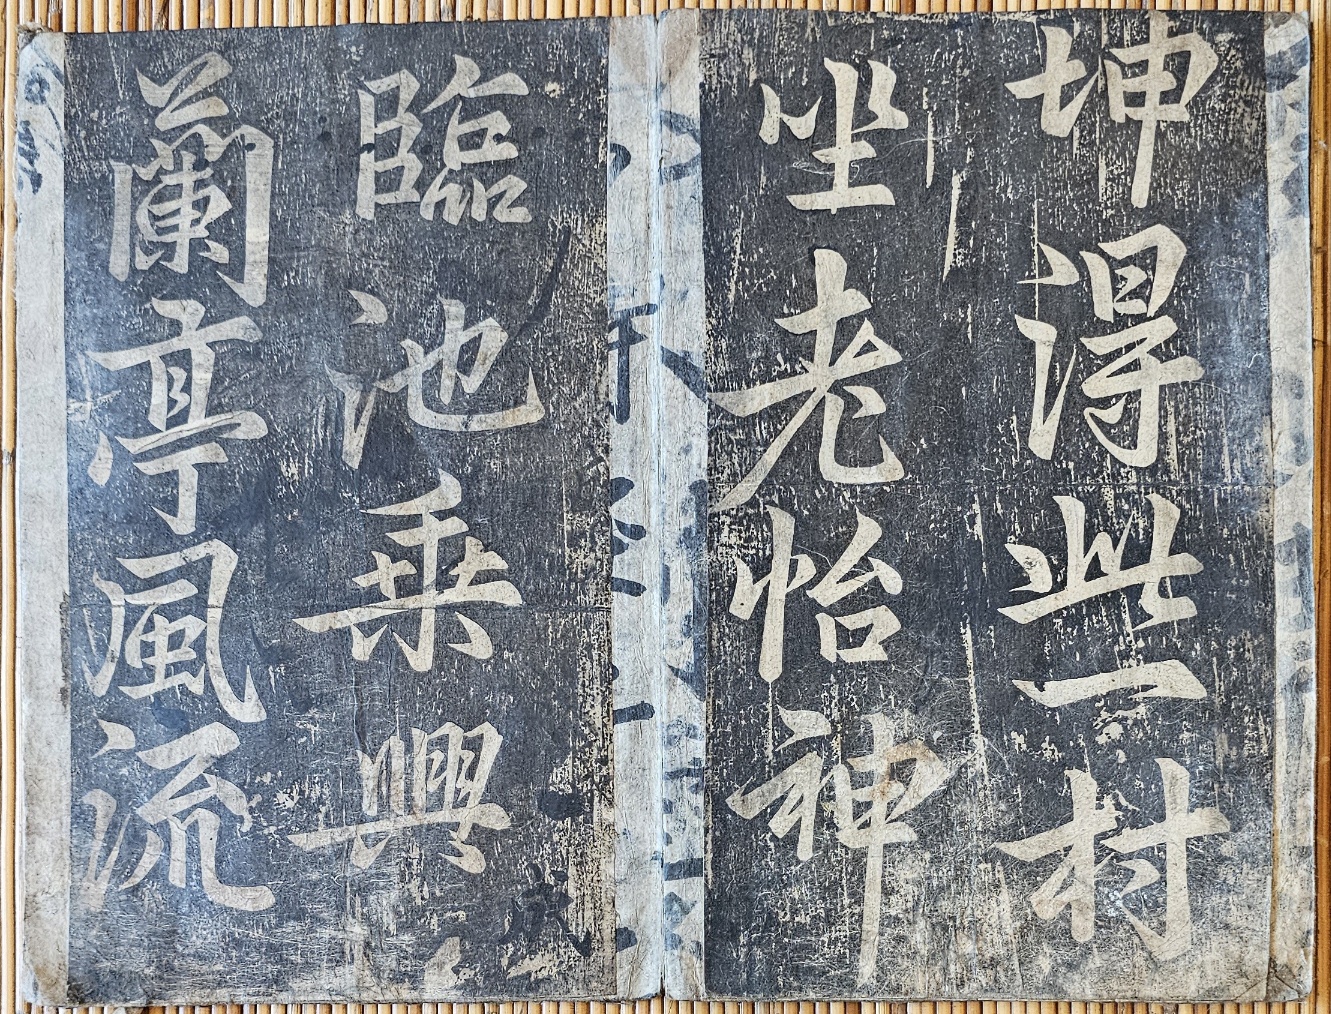 坤得此一村
坐老怡神
臨池乗興
蘭亭風流